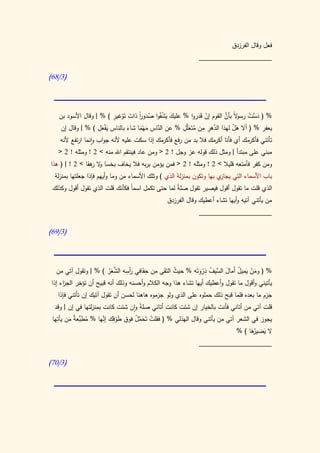 فعل وقال الفرزدق
(68/3)
% ( دَسَّتْ رسولاً بأنَّ القوم إنْ قَدَروا % عليك يَشْفُوا صُدوراً ذاتَ تَوْغيرِ ) % | وقال الأسود بن
يعفر % ( ألا هَلْ لهذا الدَّهرِ مِن مُتعلَّلِ % عن النَّاس مَهْمَا شاءَ بالناسِ يَفْعَلِ ) % | وقال إن
تأتني فأكرمك أي فأنا أكرمك فلا بد من رفع فأكرمك إذا سكت عليه لأنه جواب وانما ارتفع لأنه
مبنى على مبتدأ | ومثل ذلك قوله عز وجل ! 2 < ومن عاد فينتقم الله منه < 2 ! ومثله ! 2 <
ومن كفر فأمتعه قليلا < 2 ! ومثله ! 2 < فمن يؤمن بربه فلا يخاف بخسا ولا رهقا < 2 ! | ( هذا
باب الأسماء التي يجازي بها وتكون بمنزلة الذي ) وتلك الأسماء من وما وأيهم فإذا جعلتها بمنزلة
الذي قلت ما تقول أقول فيصير تقول صلةً لما حتى تكمل اسماً فكأنك قلت الذي تقول أقول وكذلك
من يأتني آتيه وأيها تشاء أعطيك وقال الفرزدق
(69/3)
% ( ومَنْ يَميلُ أمالَ السَّيفُ ذِرْوتَه % حيثُ التقى مِن حِفافَي رأسِه الشَّعَرُ ) % | وتقول آتي من
يأتيني وأقول ما تقول وأعطيك أيها تشاء هذا وجه الكلام وأحسنه وذلك أنه قبيح أن تؤخر الجزاء إذا
جزم ما بعده فلما قبح ذلك حملوه على الذي ولو جزموه هاهنا لحسن أن تقول آتيك إن تأتني فإذا
قلت آتي من أتاني فأنت بالخيار إن شئت كانت أتاني صلةً وإن شئت كانت بمنزلتها في إن | وقد
يجوز في الشعر آتي من يأتني وقال الهذلي % ( فقلتُ تَحَمَّلْ فوق طَوْقِك إنَّها % مُطَبَّعةٌ من يأتِها
لا يَضيرُها ) %
(70/3)